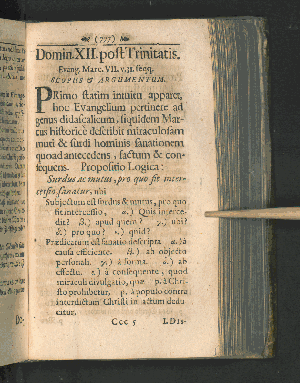 (777)
Domin. XII. post Trinitatis.
Evang. Marc. VII. v. 31. seqq.
SCOPUS & ARGUMENTUM.
PRimo statim intuitu apparet,
hoc Evangelium pertinere ad
genus didascalicum, siquidem Mar-
cus historicè describit miraculosam
muti & surdi hominis sanationem
quoad antecedens, factum & con-
sequens. Propositio Logica:
Surdus ac mutus, pro quo fit inter-
cessio, sanatur, ubi
Subjectum est surdus & mutus, pro quo
fit intercessio, α.) Quis interce-
dit? β.) apud quem? γ.) quid?
& pro quo? quid?
Prædicatum est sanatio descripta α. à
causa efficiente. β.) ab objectu
personali. γ.) à forma. δ.) ab
effectu. à consequente, quod
miraculi divulgatio, quæ à Chri-
sto prohibetur, à populo contra
interdictum Christi in actum dedu-
citur.
Ccc 5